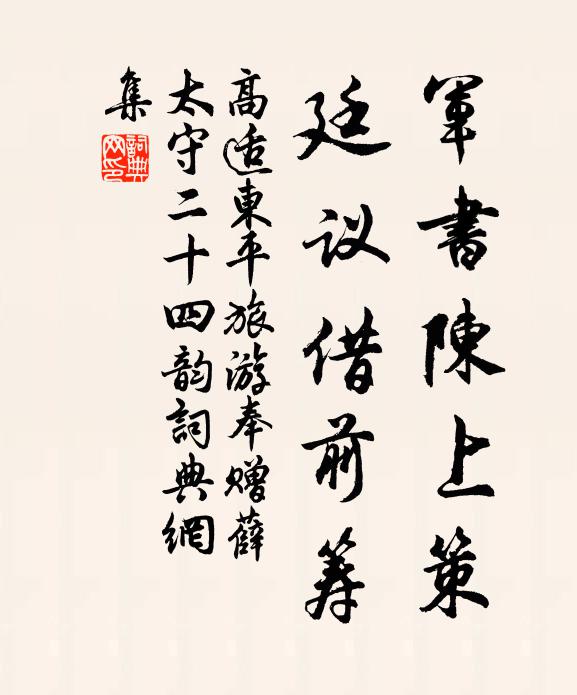 軍書陳上策
廷议借前筹
高適東平旅游奉赠薛
太守二十四韵詞典網
集
詞典網印